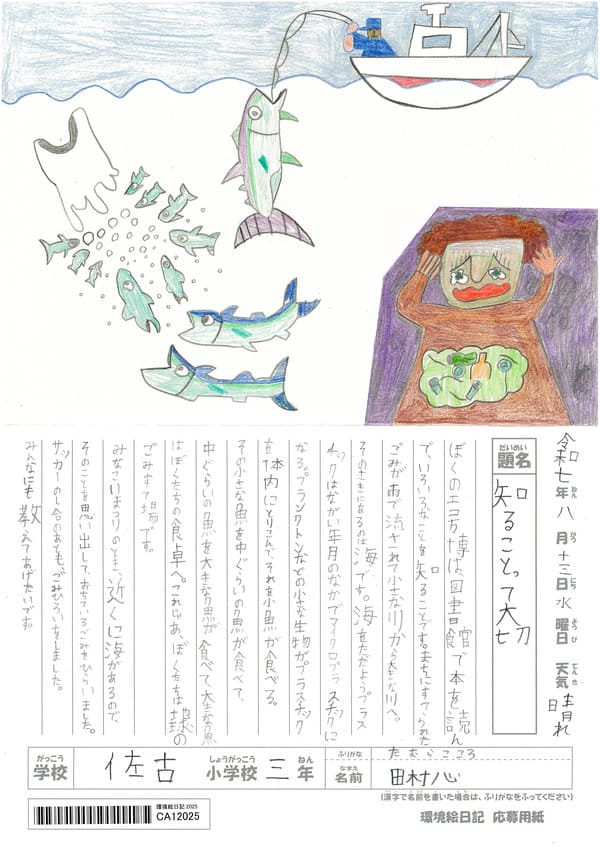 令和七年八月十三日水曜日 天気 晴れ
だいめい
題名
知ることって大切
ぼくのエコ万博は図書館で本を読ん
で、いろいろなことを知ることです。まちにすてられた
ごみが雨で流されて小さな川から大きな川へ。
そのさきにあるのは海です。海をただようプラス
チックはながい年月のなかでマイクロプラスチックに
なる。プランクトンなどの小さな生物がプラスチック
を体内にとりこんで、それを小魚が食べる。
その小さな魚を中ぐらいの魚が食べて、
中ぐらいの魚を大きな魚が食べて、大きな魚
はぼくたちの食卓へ。これじゃあ、ぼくたちは地球の
ごみすて場です。
みなこいまつりのときに近くに海があるので、
そのことを思い出して、おちているごみをひろいました。
サッカーのし合のあとも、ごみひろいをしました。
みんなにも教えてあげたいです。
がっこう
学校
佐古
しょうがっこう
小学校
三
ねん
年
ふりがな
たむらこころ
なまえ
名前
田村心
(漢字で名前を書いた場合は、ふりがなをふってください)
環境絵日記 2025
CA12025
環境絵日記 応募用紙